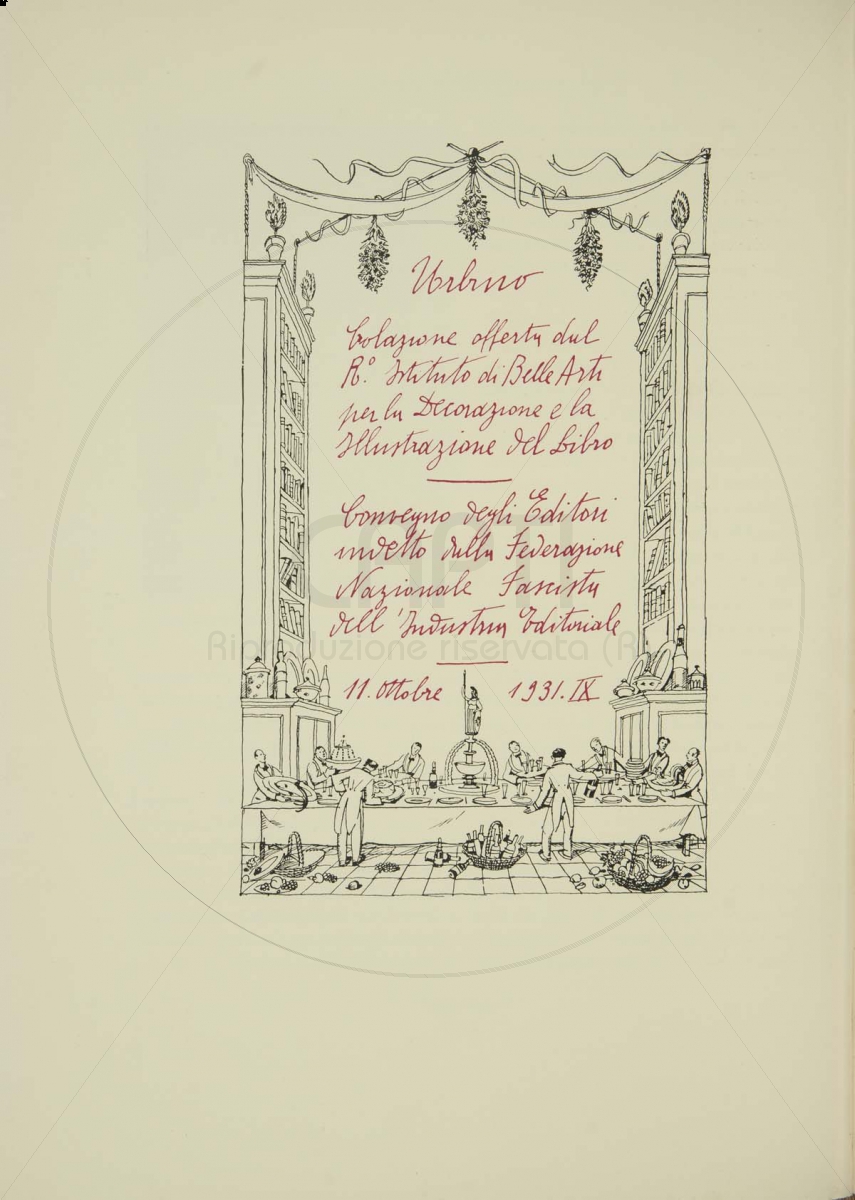 Urbino
Colazione offerta dal
R.º Istituto di Belle Arti
per la Decorazione e la
Illustrazione del Libro
Convegno degli Editori
indetto dalla Federazione
Nazionale Fascista
dell'Industria Editoriale
11. Ottobre 1931. IX
Riproduzione riservata (R